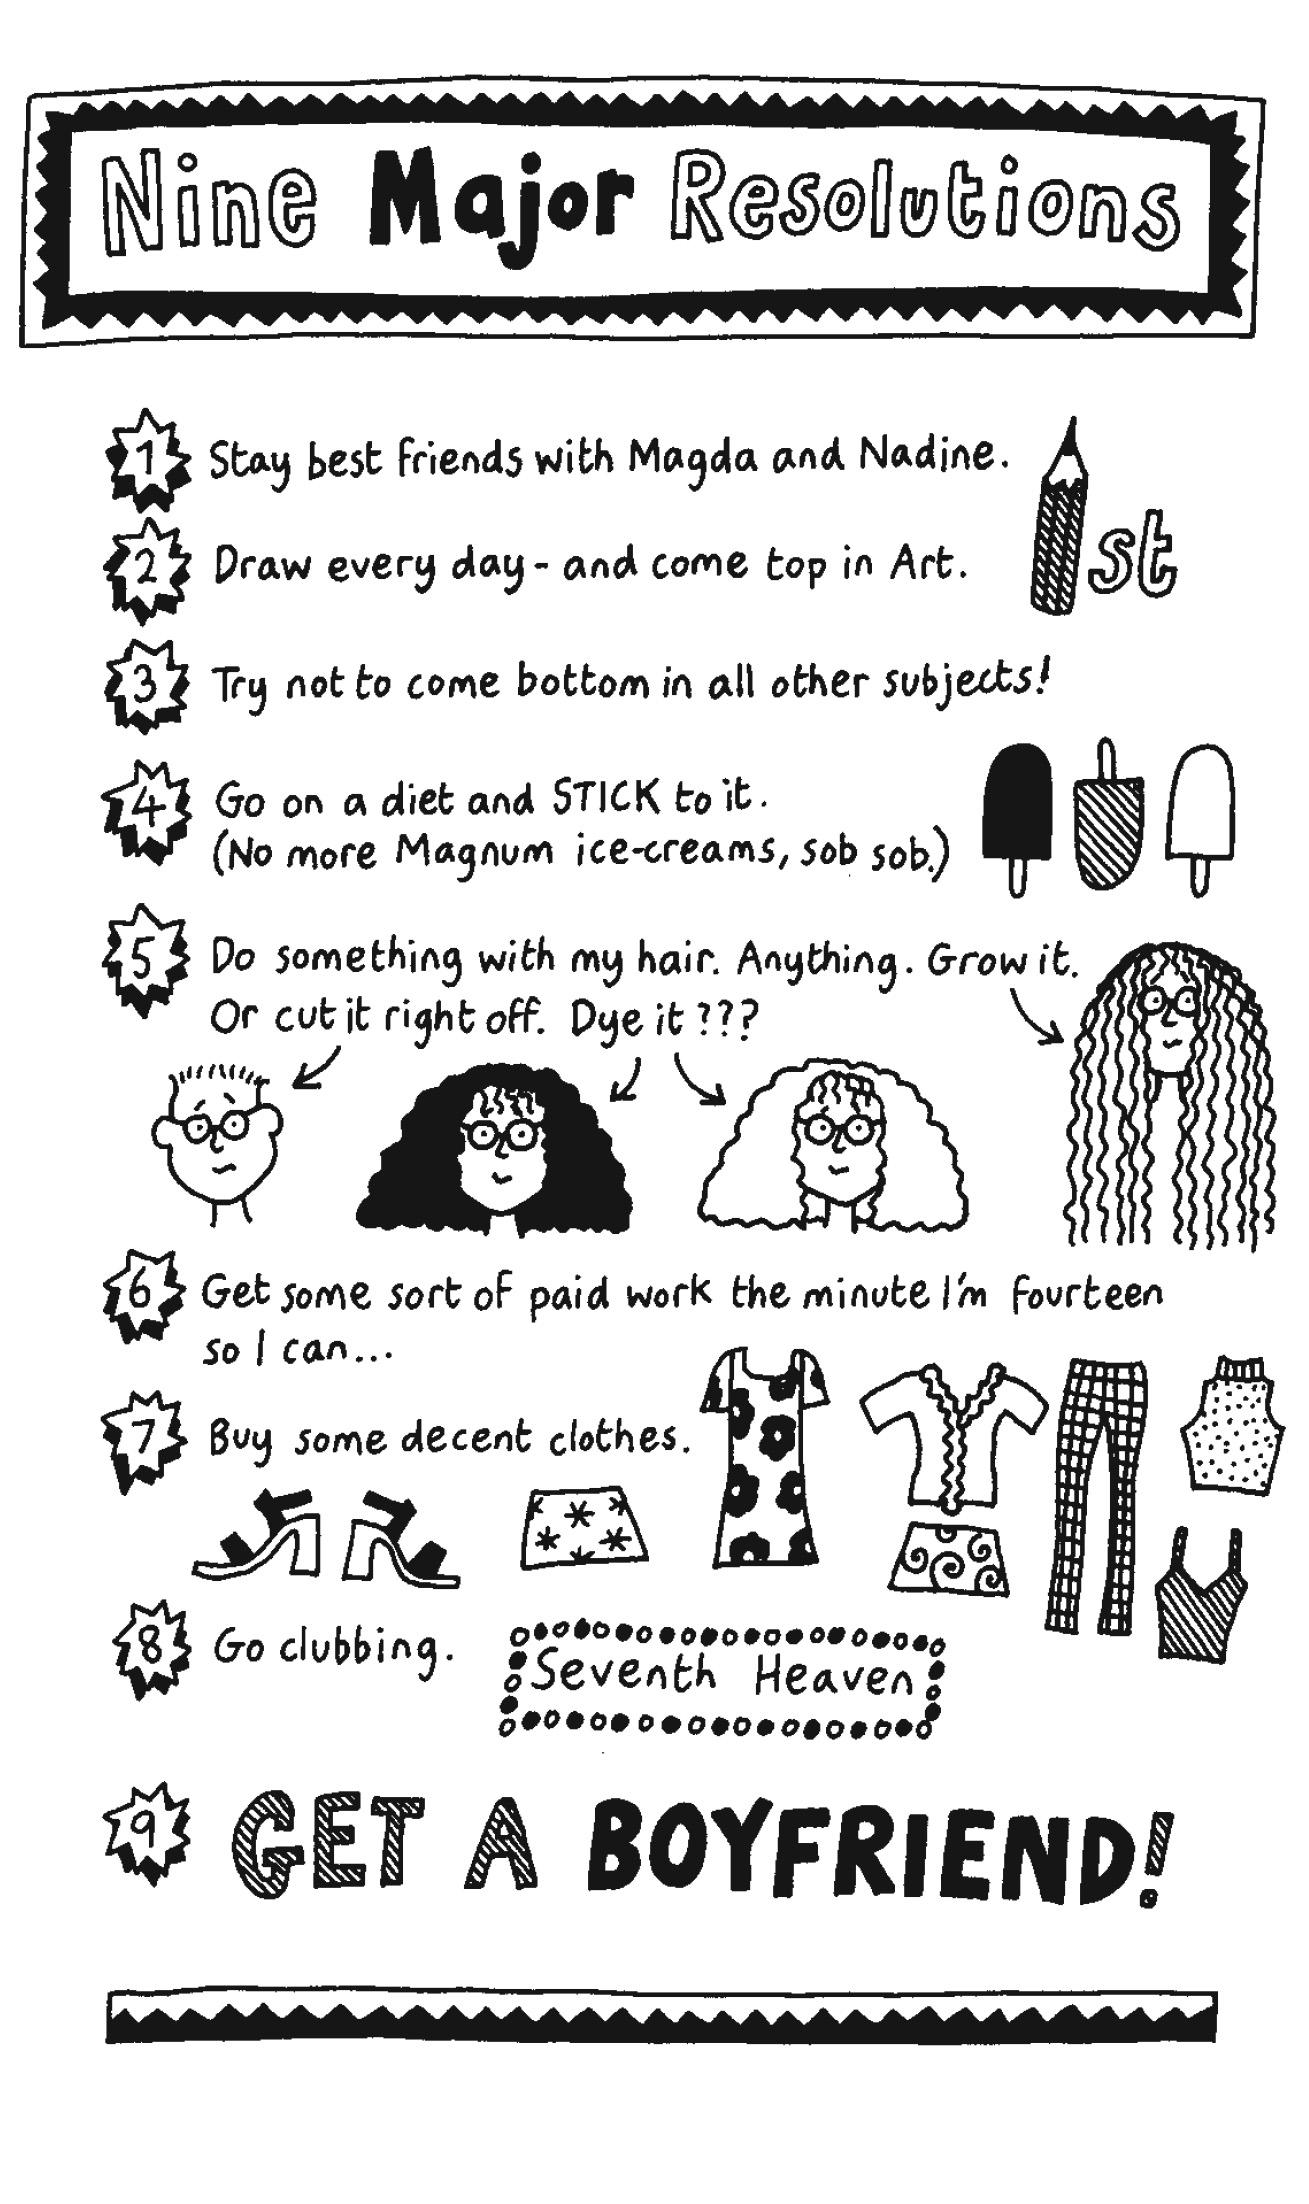 Nine Major Resolutions
1 Stay best friends with Magda and Nadine.
2 Draw every day - and come top in Art.
st
3 Try not to come bottom in all other subjects!
4 Go on a diet and STICK to it.
(No more Magnum ice-creams, sob sob.)
5 Do something with my hair. Anything. Grow it.
Or cut it right off. Dye it ???
6 Get some sort of paid work the minute I'm fourteen
so I can...
7 Buy some decent clothes.
8 Go clubbing.
Seventh Heaven
9 GET A BOYFRIEND!